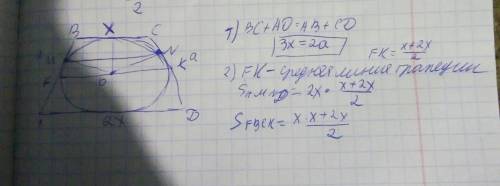 2
B X C
M N
F K a
O
A 2x D
1) BC+AD=AB+CD
3x=2a
FK=\frac{x+2x}{2}
2) FK - средняя линия трапеции
= 2x · \frac{x+2x}{2}
S_{FBCK} = x · \frac{x+2x}{2}